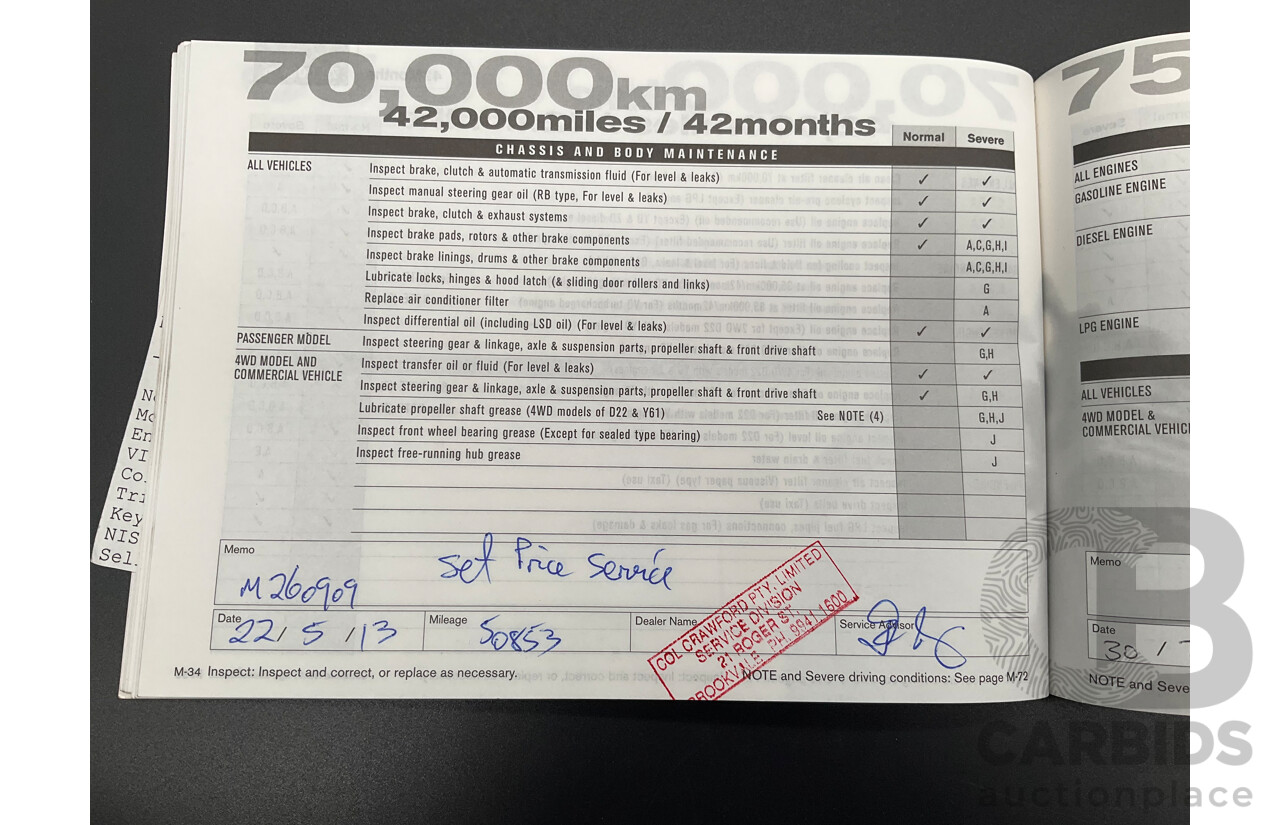 70,000km
42,000miles / 42months
Normal Severe
CHASSIS AND BODY MAINTENANCE
ALL VEHICLES Inspect brake, clutch & automatic transmission fluid (For level & leaks) ✓ ✓
Inspect manual steering gear oil (RB type, For level & leaks) ✓ ✓
Inspect brake, clutch & exhaust systems ✓ ✓
Inspect brake pads, rotors & other brake components ✓ A,C,G,H,I
Inspect brake linings, drums & other brake components A,C,G,H,I
Lubricate locks, hinges & hood latch (& sliding door rollers and links) G
Replace air conditioner filter A
Inspect differential oil (including LSD oil) (For level & leaks) ✓ ✓
PASSENGER MODEL Inspect steering gear & linkage, axle & suspension parts, propeller shaft & front drive shaft G,H
4WD MODEL AND
COMMERCIAL VEHICLE
Inspect transfer oil or fluid (For level & leaks) ✓ ✓
Inspect steering gear & linkage, axle & suspension parts, propeller shaft & front drive shaft ✓ G,H
Lubricate propeller shaft grease (4WD models of D22 & Y61) See NOTE (4) G,H,J
Inspect front wheel bearing grease (Except for sealed type bearing) J
Inspect free-running hub grease J
Memo
Set Price Service
M260909
Date 22/5/13
Mileage 50853
Dealer Name
COL CRAWFORD PTY. LIMITED
SERVICE DIVISION
21 ROGER ST.
BROOKVALE PH. 9941 1600
Service Advisor
M-34 Inspect: Inspect and correct, or replace as necessary.
NOTE and Severe driving conditions: See page M-72
75
ALL ENGINES
GASOLINE ENGINE
DIESEL ENGINE
LPG ENGINE
ALL VEHICLES
4WD MODEL &
COMMERCIAL VEHICL
Memo
Date
30 / 
NOTE and Seve
Mo
En
VI
Co.
Tri
Key
NIS
Sel.
CARBIDS
auctionplace